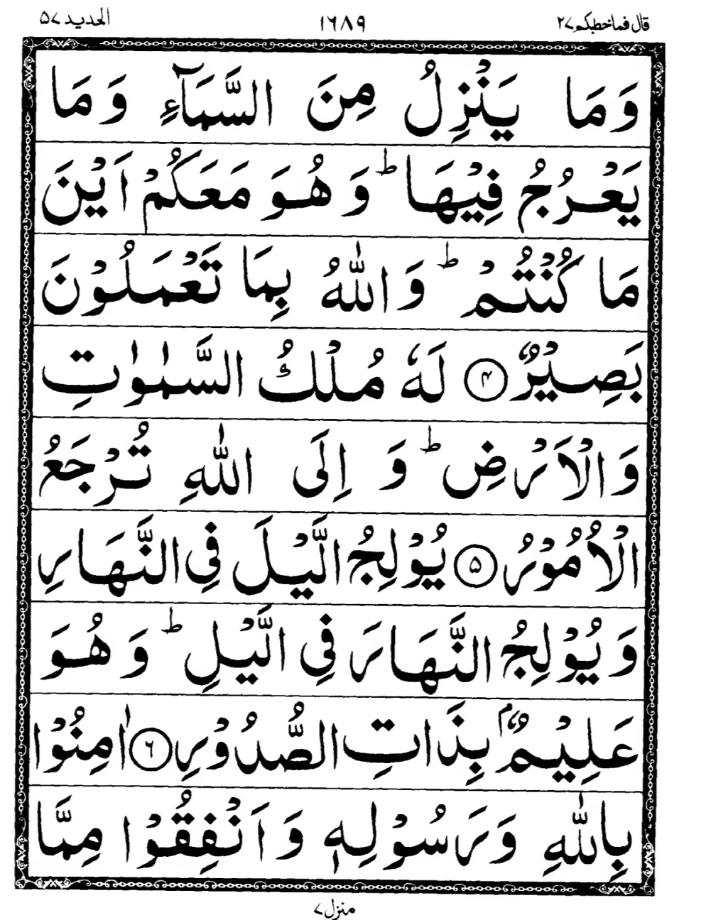 قال فماخطبكم ٢٧ ١٦٨٩ الحدید ۵۷
وَمَا يَنْزِلُ مِنَ السَّمَآءِ وَمَا
يَعْرُجُ فِيْهَا ؕ وَهُوَ مَعَكُمْ اَيْنَ
مَا كُنْتُمْ ؕ وَاللّٰهُ بِمَا تَعْمَلُوْنَ
بَصِيْرٌ ۴ لَهٗ مُلْكُ السَّمٰوٰتِ
وَالْاَرْضِ ؕ وَ اِلَى اللّٰهِ تُرْجَعُ
الْاُمُوْرُ ۵ يُوْلِجُ الَّيْلَ فِى النَّهَارِ
وَيُوْلِجُ النَّهَارَ فِى الَّيْلِ ؕ وَهُوَ
عَلِيْمٌۢ بِذَاتِ الصُّدُوْرِ ۶ اٰمِنُوْا
بِاللّٰهِ وَرَسُوْلِهٖ وَاَنْفِقُوْا مِمَّا
منزل ۷